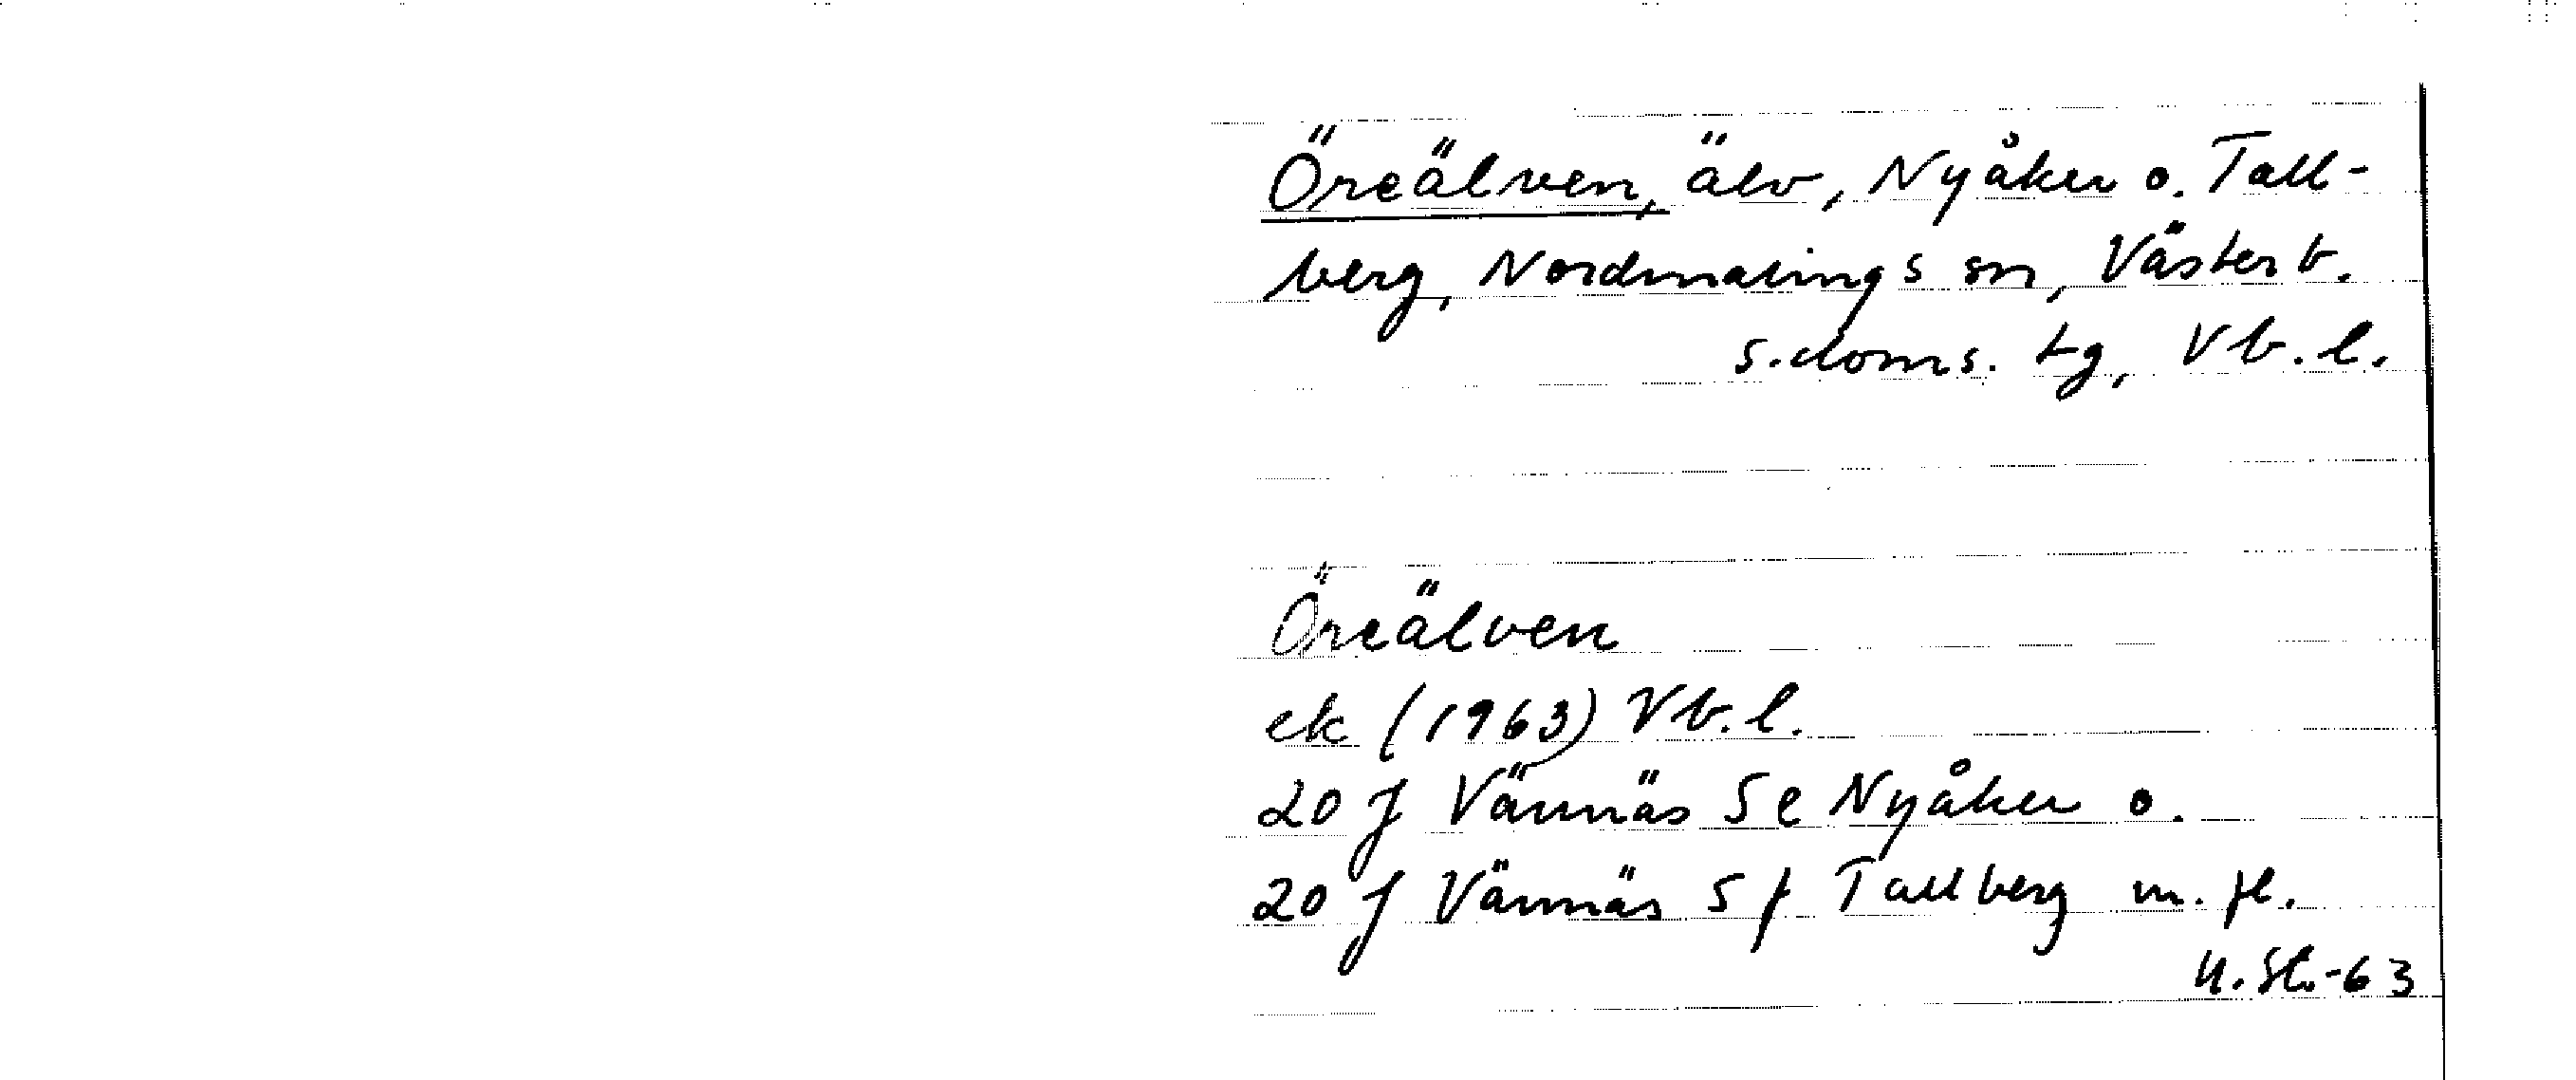 Öreälven, älv, Nyåker o. Tall-
berg, Nordmalings sn, Västerb.
s. doms. tg, Vb. l.
Öreälven
ek (1963) Vb. l.
20 J Vännäs Se Nyåker o.
20 J Vännäs Sf Tallberg m. fl.
U. St.-63